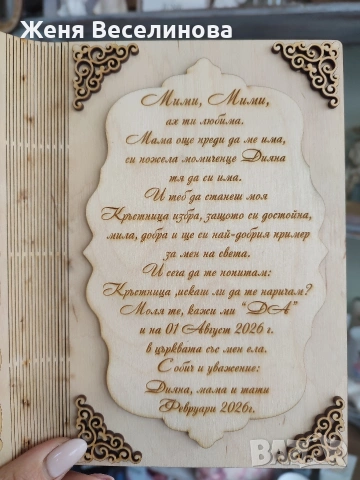 Женя Веселинова
Мими, Мими,
ах ти любима.
Мама още преди да ме има,
си пожела момиченце Дияна
тя да си има.
И теб да станеш моя
Кръстница избра, защото си достойна,
мила, добра и ще си най-добрия пример
за мен на света.
И сега да те попитам:
Кръстница искаш ли да те наричам?
Моля те, кажи ми "ДА"
и на 01 Август 2026 г.
в църквата със мен ела.
С обич и уважение:
Дияна, мама и тати
Февруари 2026г.